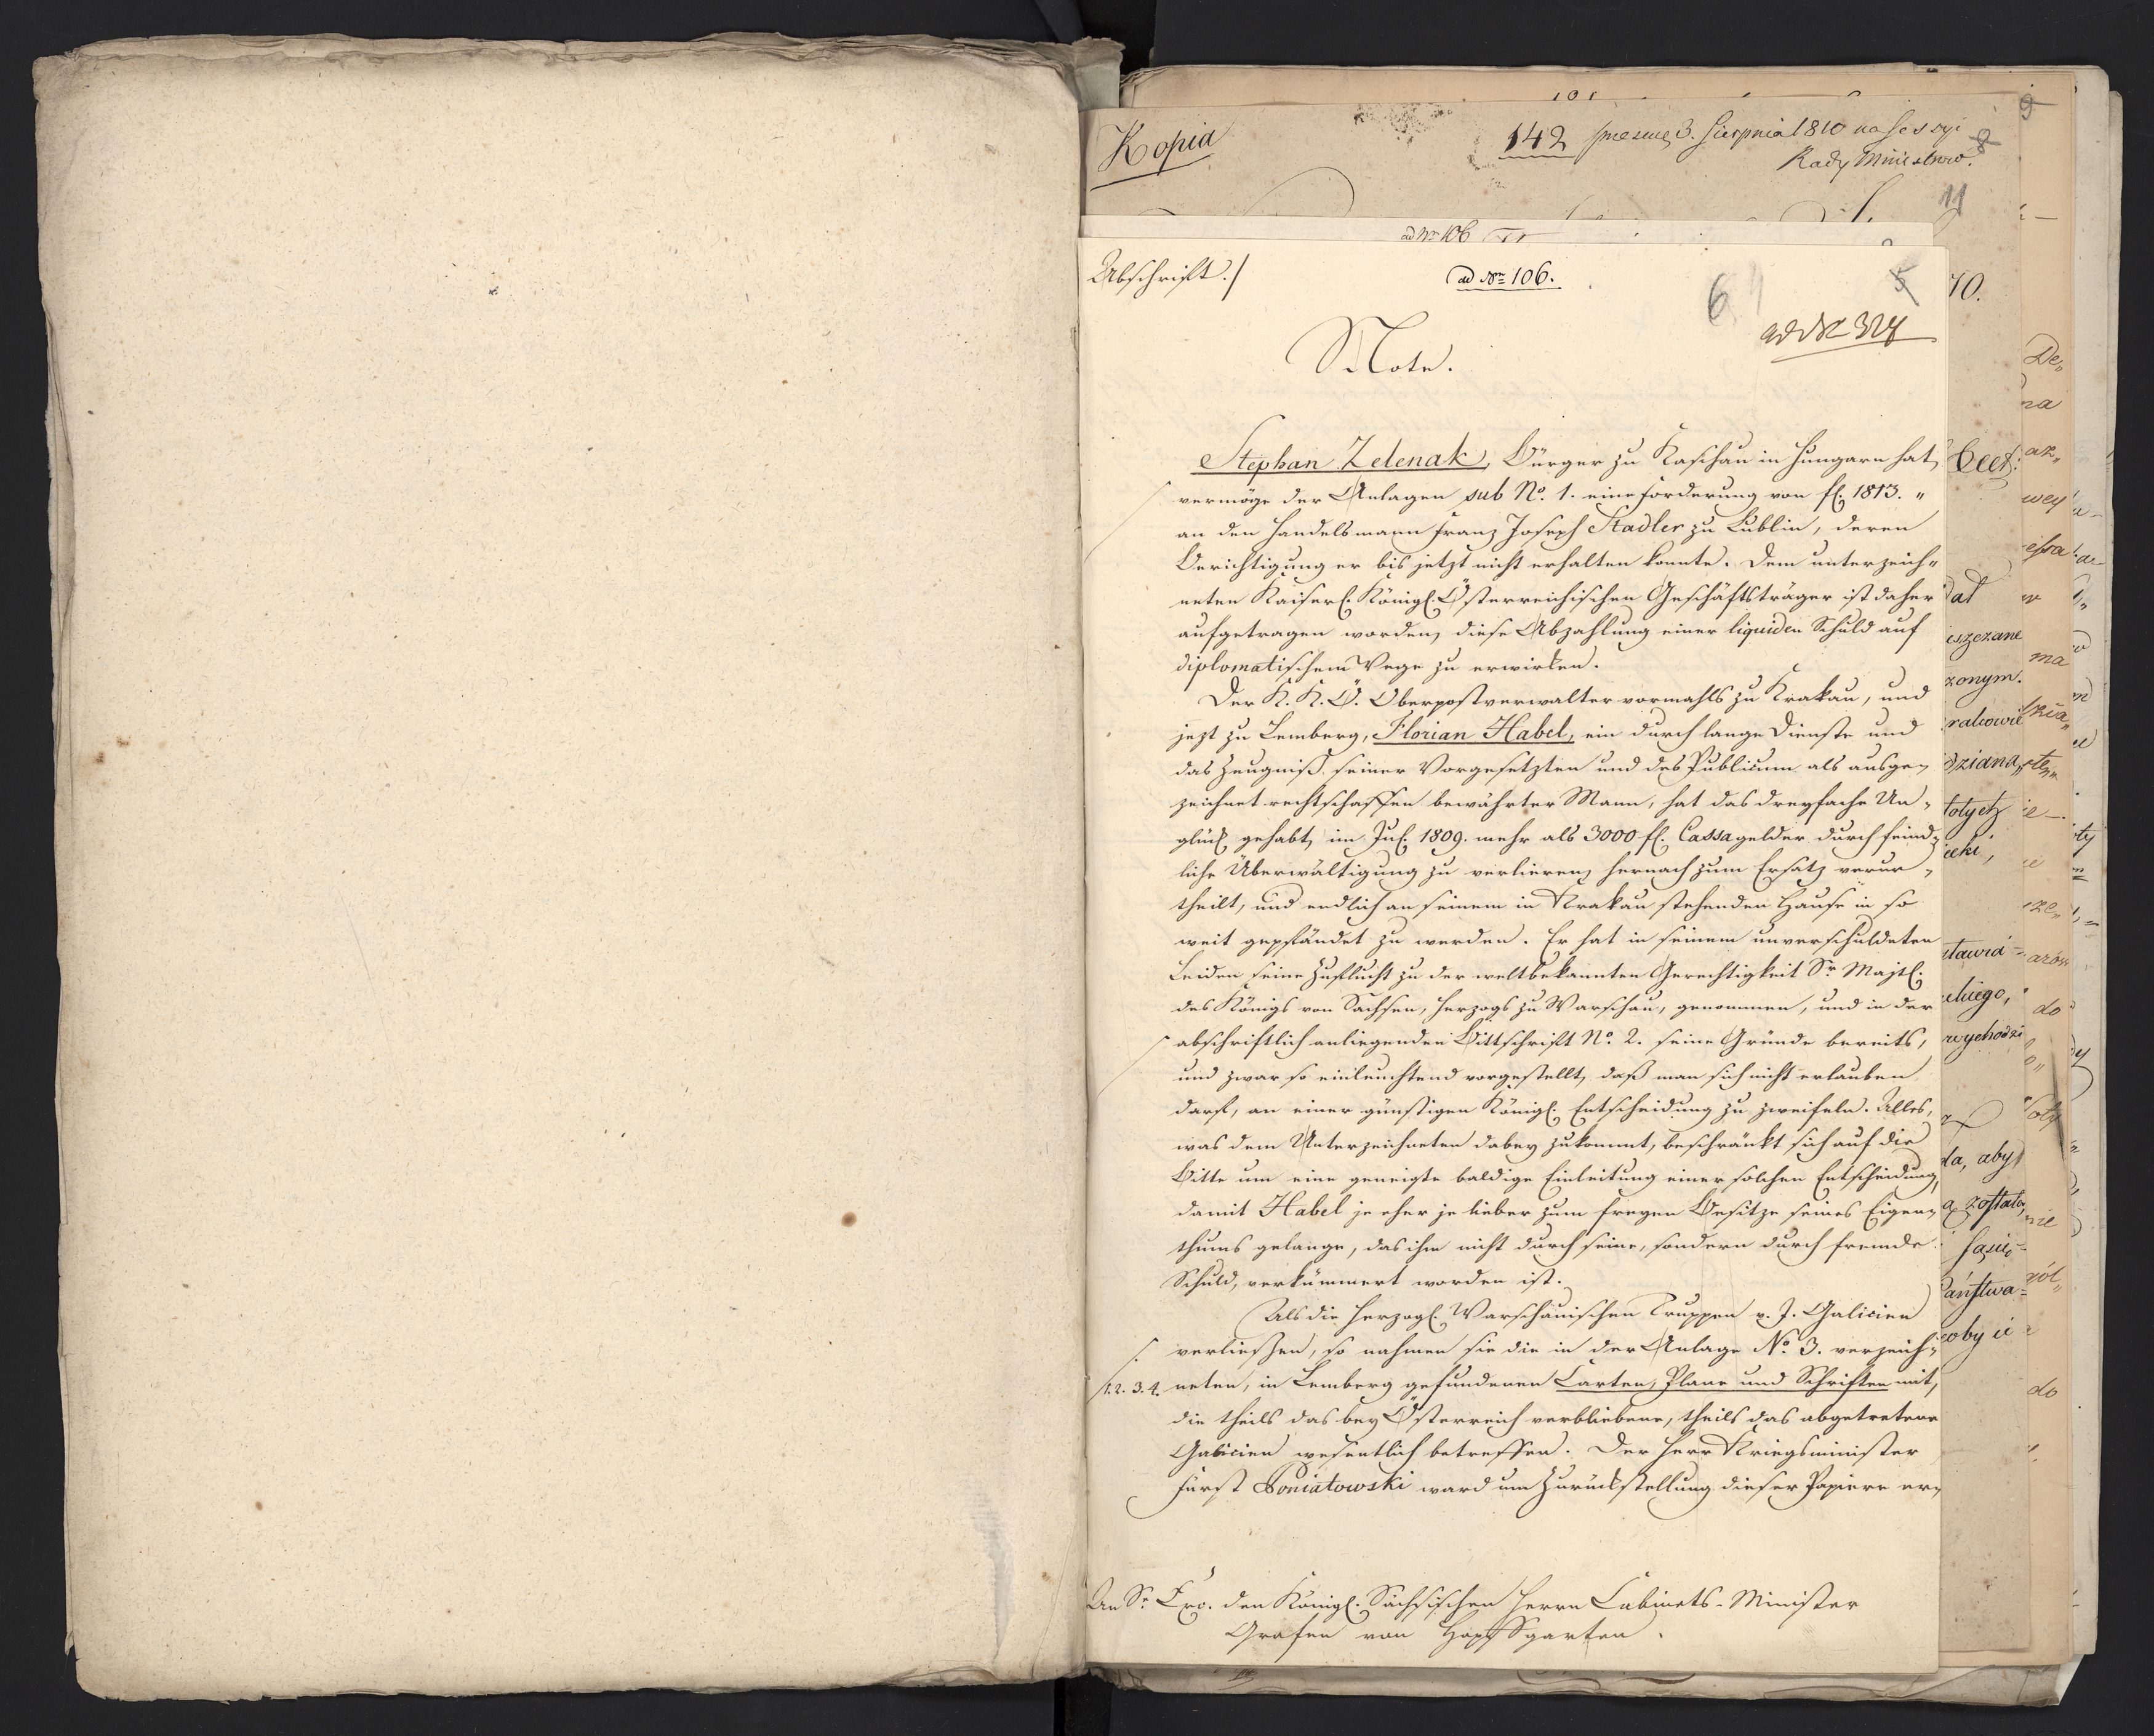 Kopia
142 prezens 3. Sierpnia 1810 na Sessyi
Rady Ministrów.
8
9
11
ad Nro 106
Abschrift./.
ad Nro 106.
6
5
ad Nr 324
Note.
Stephan Zelenak, Bürger zu Kaschau in Hungarn hat,
vermöge der Anlagen sub No. 1. eine Forderung von fl. 1813. "
an den Handelsmann Franz Joseph Stadler zu Lublin, deren
Berichtigung er bis jetzt nicht erhalten konnte. Dem unterzeich-
neten Kaiserl. Königl. Österreichischen Geschäftsträger ist daher
aufgetragen worden, diese Abzahlung einer liquiden Schuld auf
diplomatischem Wege zu erwirken.
Der K. K. Ö. Oberpostverwalter vormahls zu Krakau, und
jezt zu Lemberg, Florian Habel, ein durch lange Dienste und
das Zeugniß seiner Vorgesetzten und des Publicum als ausge-
zeichnet rechtschaffen bewährter Mann, hat das dreyfache Un-
glück gehabt, im Jul. 1809. mehr als 3000 fl. Cassagelder durch feind-
liche Überwältigung zu verlieren, hernach zum Ersatz verur-
theilt, und endlich an seinem in Krakau stehenden Hause in so
weit gepfändet zu werden. Er hat in seinem unverschuldeten
Leiden seine Zuflucht zu der weltbekannten Gerechtigkeit Sr. Majtl.
des Königs von Sachsen, Herzogs zu Warschau, genommen, und in der
abschriftlich anliegenden Bittschrift No. 2. seine Gründe bereits,
und zwar so einleuchtend vorgestellt, daß man sich nicht erlauben
darf, an einer günstigen Königl. Entscheidung zu zweifeln. Alles,
was dem Unterzeichneten dabey zukommt, beschränkt sich auf die
Bitte um eine geneigte baldige Einleitung einer solchen Entscheidung,
damit Habel je eher je lieber zum freyen Besitze seines Eigen-
thums gelange, das ihm nicht durch seine, sondern durch fremde
Schuld, verkümmert worden ist.
Als die Herzogl. Warschauischen Truppen v. J. Galicien
verließen, so nahmen sie die in der Anlage No. 3. verzeich-
/1. 2. 3. 4. neten, in Lemberg gefundenen Carten, Plane und Schriften mit,
die theils das bey Österreich verbliebene, theils das abgetretene
Galicien wesentlich betreffen. Der Herr Kriegsminister
Fürst Poniatowski ward um Zurückstellung dieser Papiere er-
An Sr. Exc. den Königl. Sächsischen Herrn Cabinets-Minister
Grafen von Hopffgarten.